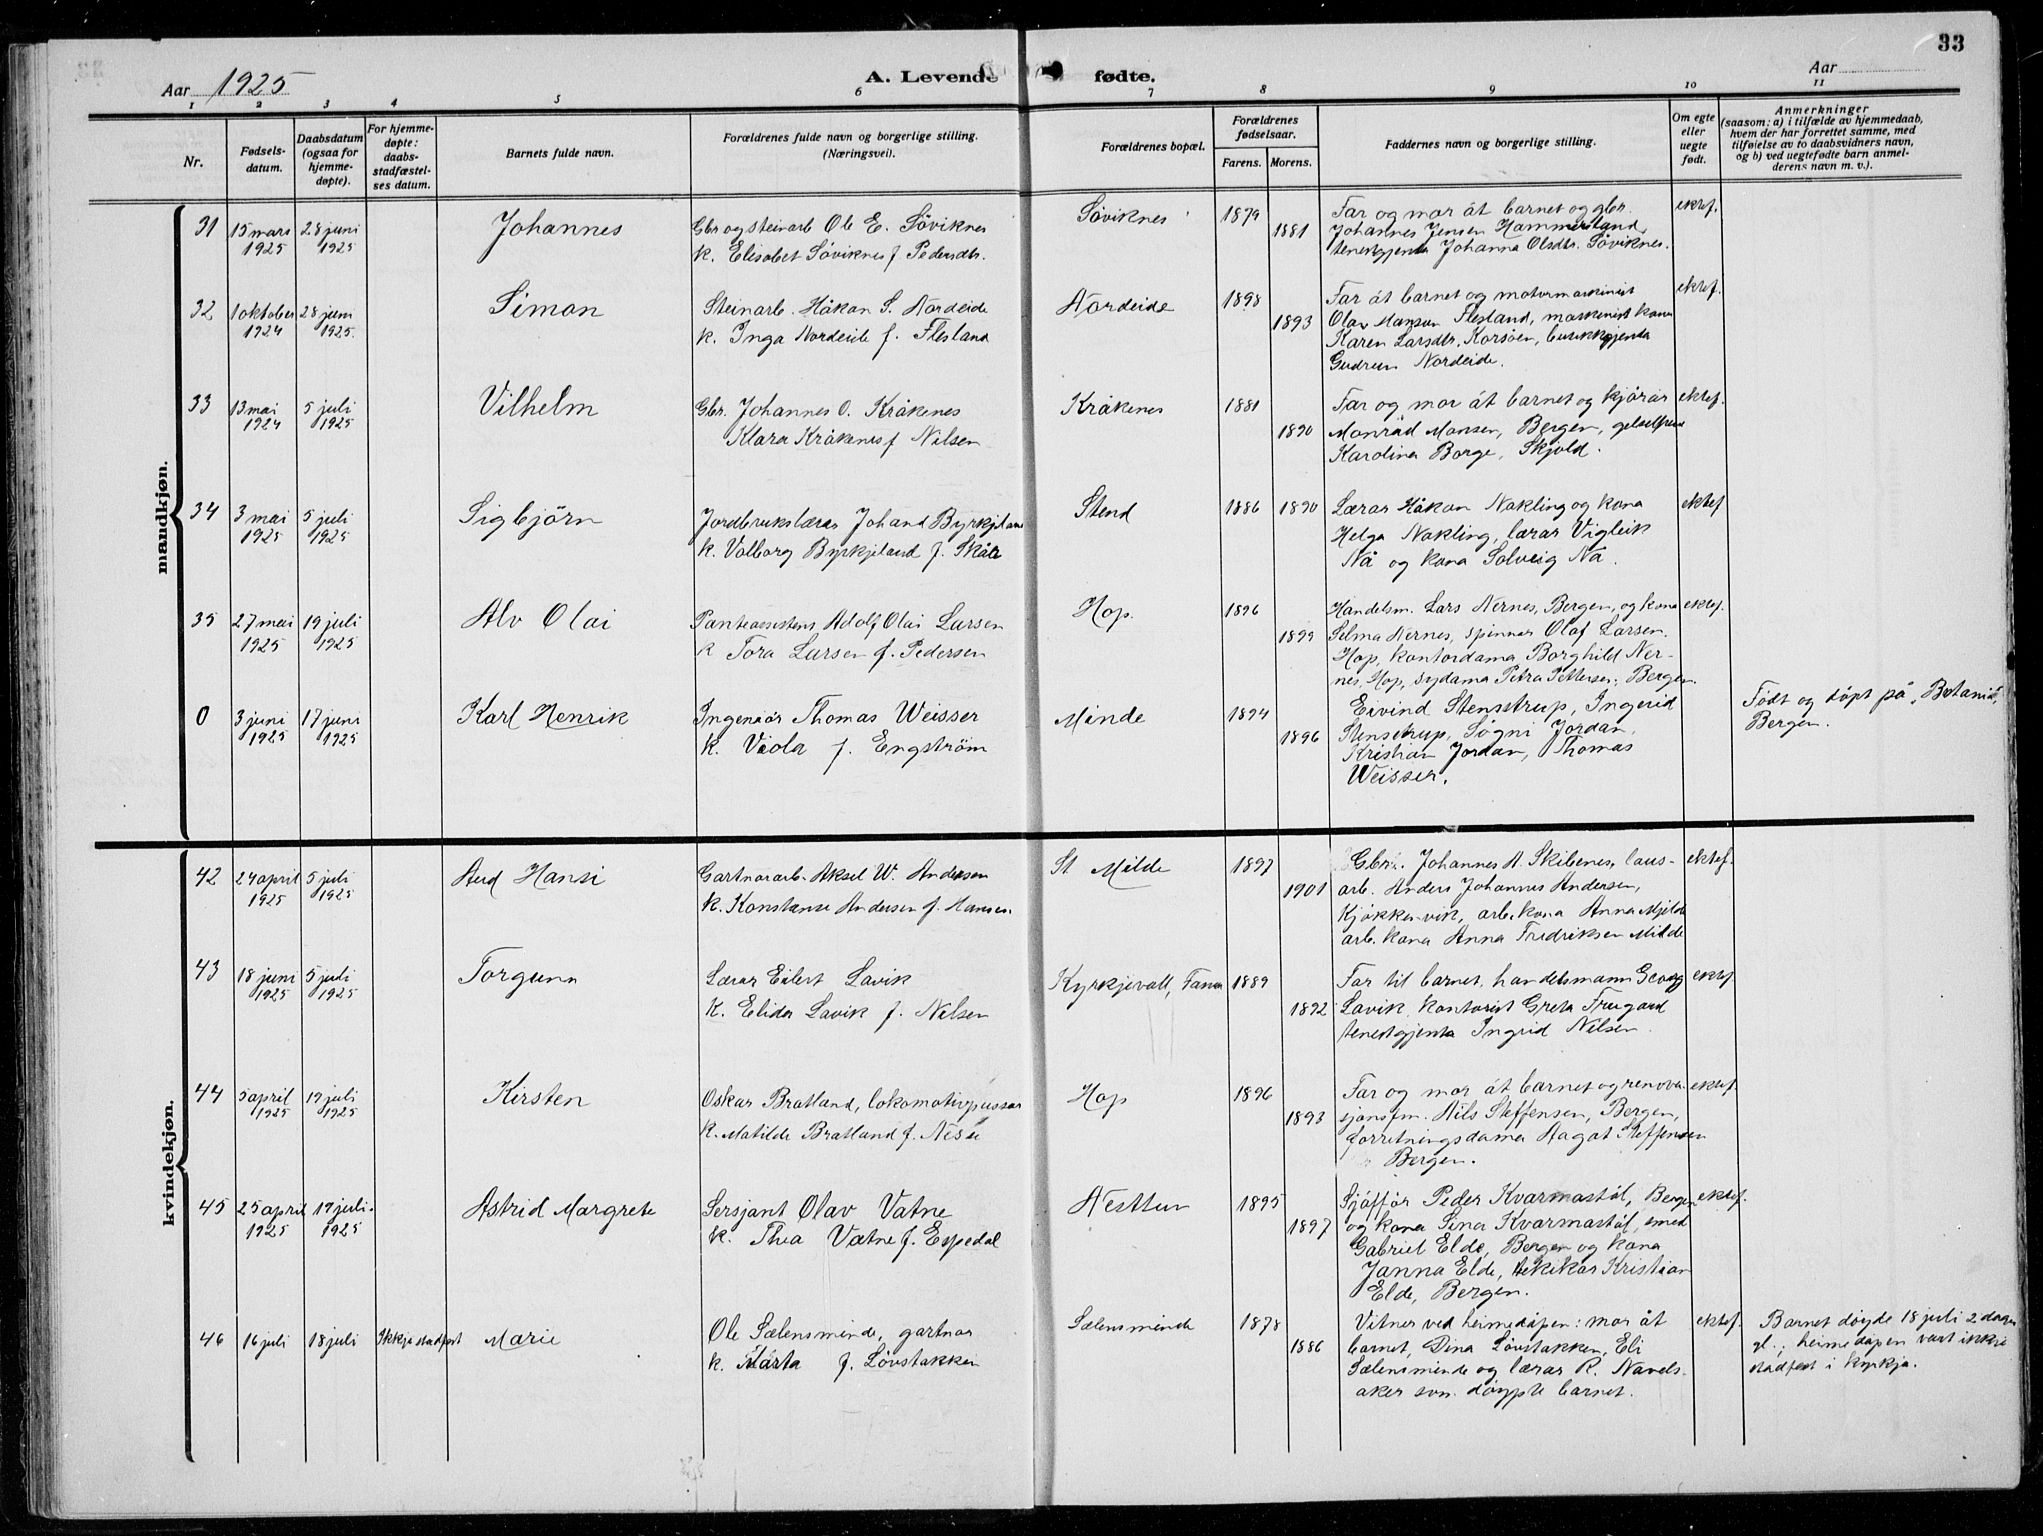 33
Aar 1925
A. Levende fødte.
Aar
1 2 3 4 5 6 7 8 9 10 11
Nr.
Fødsels-
datum.
Daabsdatum
(ogsaa for
hjemme-
døpte).
For hjemme-
døpte:
daabs-
stadfæstel-
ses datum.
Barnets fulde navn.
Forældrenes fulde navn og borgerlige stilling.
(Næringsvei).
Forældrenes bopæl.
Forældrenes
fødselsaar.
Farens. Morens.
Faddernes navn og borgerlige stilling.
Om egte
eller
uegte
født.
Anmerkninger
(saasom: a) i tilfælde av hjemmedaab,
hvem der har forrettet samme, med
tilføielse av to daabsvidners navn,
og b) ved uegtefødte barn anmel-
derens navn m. v.).
mandkjøn.
31 15 mars 1925 28 juni 1925 Johannes
Gbr og steinarb Ole E. Søviknes
k. Elisabet Søviknes f. Pedersdtr.
Søviknes 1879 1881
Far og mor åt barnet og gbr.
Johannes Jensen Hammersland,
tenestgjenta Johanna Olsdtr. Søviknes.
ektef.
32 1 oktober 1924 28 juni 1925. Simon
Steinarb. Håkon S. Nordeide
k. Inga Nordeide f. Flesland
Nordeide 1898 1893
Far åt barnet og motormaskinist
Olav Monsen Flesland, maskinist kona
Karen Larsdtr. Korsøen, butikkgjenta
Gudrun Nordeide.
ektef.
33 13 mai 1924 5 juli 1925 Vilhelm
Gbr. Johannes O. Kråkenes
Klara Kråkenes f Nilsen
Kråkenes 1881 1890
Far og mor åt barnet og kjørar
Monrad Monsen, Bergen,
Karolina Borge, Skjold.
ektef.
34 3 mai 1925 5 juli 1925 Sigbjörn
Jordbrukslærar Johand Byrkjeland
k. Valborg Byrkjeland f. Skåle
Stend 1886 1890
Lærar Håkon Nakling og kona
Helga Nakling, lærar Vigleik
Nå og kona Solveig Nå.
ektef
35 27 mai 1925 19 juli 1925 Alv Olai
Panteassistent Adolf Olai Larsen
k Tora Larsen f. Pedersen
Hop. 1896 1899
Handelsm. Lars Nernes, Bergen, og kona
Selma Nernes, spinnar Olaf Larsen.
Hop, kontordama Borghild Ner-
nes, Hop, sydama Petra Pettersen, Bergen
ektef.
0 3 juni 1925 17 juni 1925 Karl Henrik
Ingeniør Thomas Weisser
k. Viola f. Engström
Minde 1894 1896
Eivind Stensstrup, Ingerid
Stensstrup, Søgni Jordan,
Kristian Jordan, Thomas
Weisser.
Født og døpt på "Betania",
Bergen.
kvindekjøn.
42 24 april 1925 5 juli 1925 Aud Hansi
Gartnararb. Aksel W. Andersen
k. Konstanse Andersen f. Hansen.
St Milde 1897 1901
Gbr. Johannes A. Skibenes, laus-
arb. Anders Johannes Andersen,
Kjøkkenvik, arb. kona Anna Mjilde
arb. kona Anna Fredriksen Milde
ektef.
43 18 juni 1925 5 juli 1925 Torgunn
Lærar Eilert Lavik
k. Elida Lavik f. Nilsen
Kyrkjevoll, Fana 1889 1892
Far til barnet, handelsmann Georg
Lavik, kontorist Greta Frugaard
tenestgjenta Ingrid Nilsen.
ektef
44 5 april 1925 19 juli 1925 Kirsten
Oskar Bratland, lokomotivpussar
k. Matilde Bratland f. Nesse
Hop 1896 1893
Far og mor åt barnet og renova-
sjonsfm. Nils Steffensen, Bergen,
forretningsdama Aagot Steffensen
Bergen.
ektef.
45 25 april 1925 19 juli. 1925 Astrid Margrete
Sersjant Olav Vatne
k. Thea Vatne f. Espedal
Nesttun 1895 1897
Sjåffør Peder Kvarmastøl, Bergen
og kona Sina Kvarmastøl, smed
Gabriel Elde, Bergen og kona
Janna Elde, tekikar Kristian
Elde, Bergen.
ektef.
46 16 juli 18 juli Ikkje stadfest Marie
Ole Sælensminde, gartnar
k. Marta f. Løvstakken
Sælensminde 1878 1886
Vitner ved heimedåpen: mor åt
barnet, Dina Løvstakken, Eli
Sælensminde og lærar R. Navels-
aker som døypte barnet.
ektef.
Barnet døyde 18 juli 2 dagar
gl.; heimedåpen vart ikkje
stadfest i kyrkja.